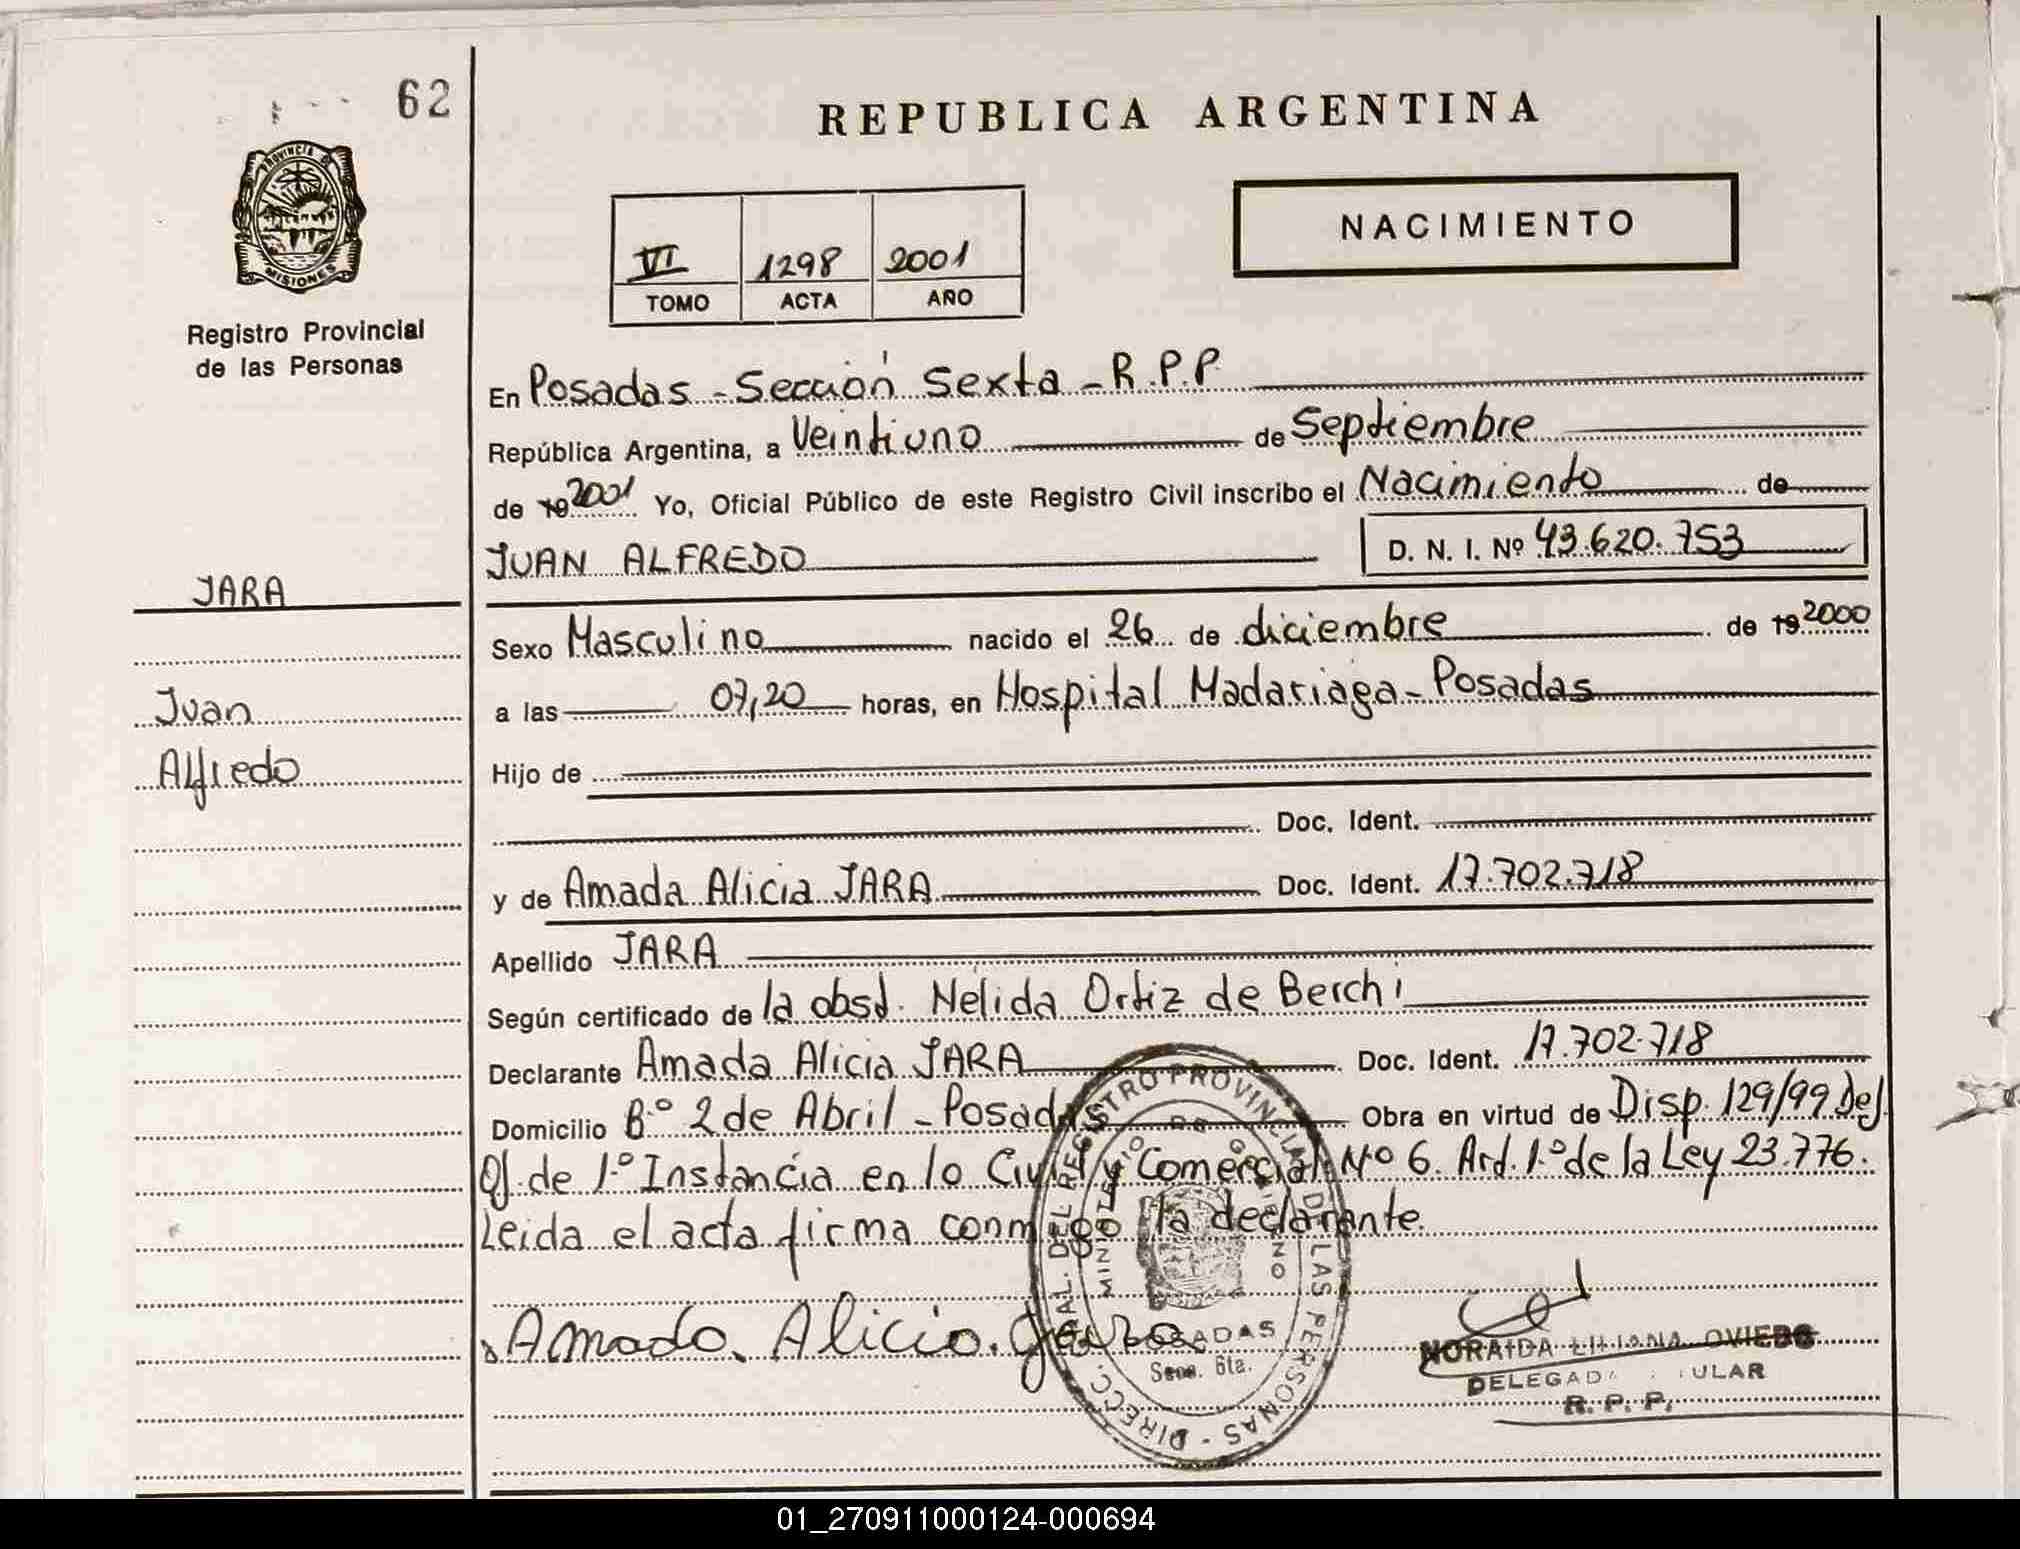 62
PROVINCIA DE
MISIONES
Registro Provincial
de las Personas
JARA
Juan
Alfredo
REPUBLICA ARGENTINA
NACIMIENTO
VI 1298 2001
TOMO ACTA AÑO
En Posadas - Sección Sexta - R.P.P
República Argentina, a Veintiuno de Septiembre
de 19 2001 Yo, Oficial Público de este Registro Civil inscribo el Nacimiento de
JUAN ALFREDO D. N. I. Nº 43.620.753
Sexo Masculino nacido el 26 de diciembre de 19 2000
a las 07,20 horas, en Hospital Madariaga - Posadas
Hijo de
Doc. Ident.
y de Amada Alicia JARA Doc. Ident. 17.702.718
Apellido JARA
Según certificado de la obst. Nélida Ortiz de Berchi
Declarante Amada Alicia JARA Doc. Ident. 17.702.718
Domicilio Bº 2 de Abril - Posadas Obra en virtud de Disp. 129/99 Del
Of. de 1º Instancia en lo Civil y Comercial Nº 6. Art. 1º de la Ley 23.776.
Leida el acta firma conmigo la declarante.
Amado. Alicio. Jara
DIRECC. GRAL. DEL REGISTRO PROVINCIAL DE LAS PERSONAS -
MINISTERIO DE GOBIERNO
POSADAS
Secc. 6ta.
NORAIDA LILIANA OVIEDO
DELEGADA TITULAR
R. P. P.
01_270911000124-000694